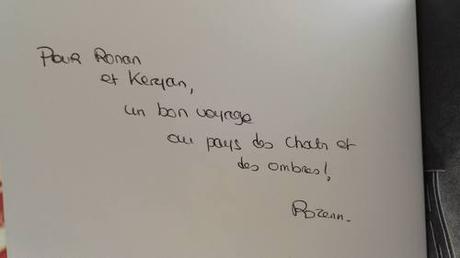 Pour Ronan
et Keryan,
un bon voyage
au pays des chats et
des ombres !,
Rozenn.